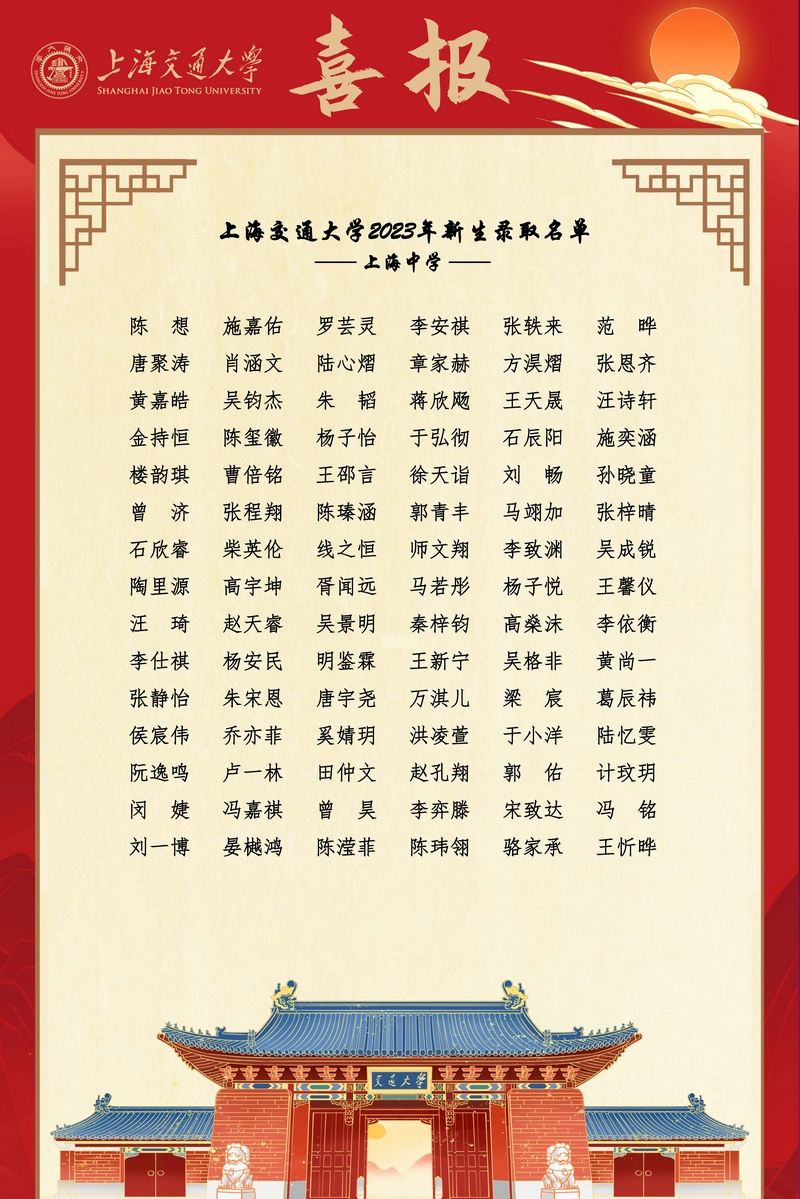 上海交通大学
SHANGHAI JIAO TONG UNIVERSITY
喜报
上海交通大学2023年新生录取名单
—— 上海中学 ——
陈 想 施嘉佑 罗芸灵 李安祺 张轶来 范 晔
唐聚涛 肖涵文 陆心熠 章家赫 方淏熠 张恩齐
黄嘉皓 吴钧杰 朱 韬 蒋欣飏 王天晟 汪诗轩
金持恒 陈玺徽 杨子怡 于弘彻 石辰阳 施奕涵
楼韵琪 曹倍铭 王邵言 徐天诣 刘 畅 孙晓童
曾 济 张程翔 陈瑧涵 郭青丰 马翊加 张梓晴
石欣睿 柴英伦 线之恒 师文翔 李致渊 吴成锐
陶里源 高宇坤 胥闻远 马若彤 杨子悦 王馨仪
汪 琦 赵天睿 吴景明 秦梓钧 高燊沫 李依衡
李仕祺 杨安民 明鉴霖 王新宁 吴格非 黄尚一
张静怡 朱宋恩 唐宇尧 万淇儿 梁 宸 葛辰祎
侯宸伟 乔亦菲 奚婧玥 洪凌萱 于小洋 陆忆雯
阮逸鸣 卢一林 田仲文 赵孔翔 郭 佑 计玟玥
闵 婕 冯嘉祺 曾 昊 李弈滕 宋致达 冯 铭
刘一博 晏樾鸿 陈滢菲 陈玮翎 骆家承 王忻晔
交通大学